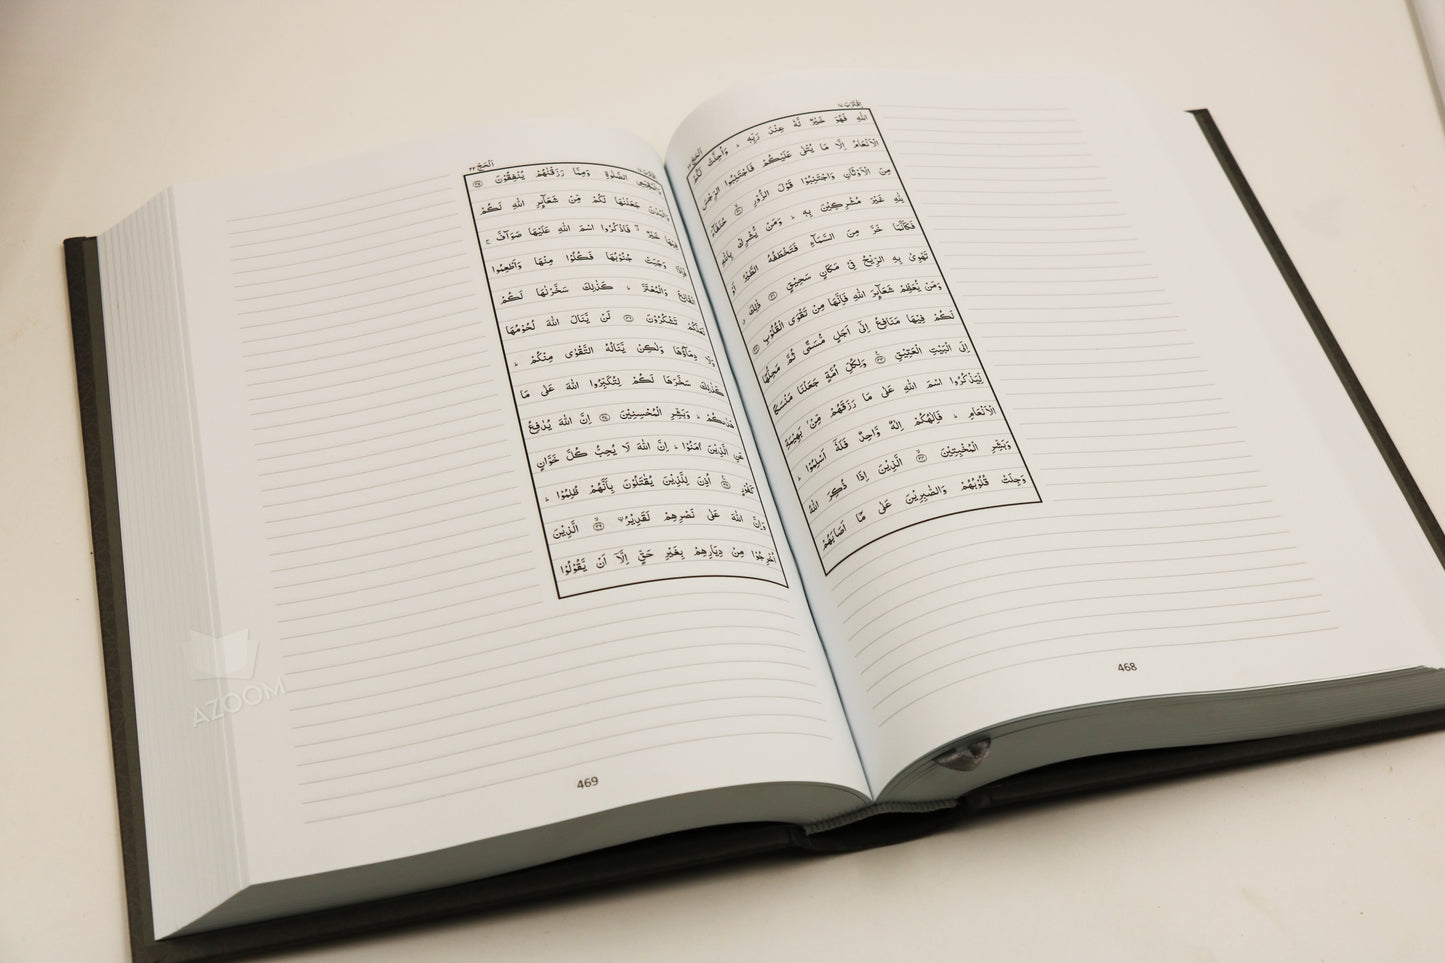 اِقْتَرَبَ ١٧ اَلْحَجّ ٢٢
اللّٰهِ فَهُوَ خَيْرٌ لَّهٗ عِنْدَ رَبِّهٖ ؕ وَاُحِلَّتْ لَكُمُ
الْاَنْعَامُ اِلَّا مَا يُتْلٰى عَلَيْكُمْ فَاجْتَنِبُوا الرِّجْسَ
مِنَ الْاَوْثَانِ وَاجْتَنِبُوْا قَوْلَ الزُّوْرِ ۙ﴿٣٠﴾ حُنَفَآءَ
لِلّٰهِ غَيْرَ مُشْرِكِيْنَ بِهٖ ؕ وَمَنْ يُّشْرِكْ بِاللّٰهِ
فَكَاَنَّمَا خَرَّ مِنَ السَّمَآءِ فَتَخْطَفُهُ الطَّيْرُ اَوْ
تَهْوِيْ بِهِ الرِّيْحُ فِيْ مَكَانٍ سَحِيْقٍ ﴿٣١﴾ ذٰلِكَ ۗ
وَمَنْ يُّعَظِّمْ شَعَآئِرَ اللّٰهِ فَاِنَّهَا مِنْ تَقْوَى الْقُلُوْبِ ﴿٣٢﴾
لَكُمْ فِيْهَا مَنَافِعُ اِلٰٓى اَجَلٍ مُّسَمًّى ثُمَّ مَحِلُّهَآ
اِلَى الْبَيْتِ الْعَتِيْقِ ﴿٣٣﴾ وَلِكُلِّ اُمَّةٍ جَعَلْنَا مَنْسَكًا
لِّيَذْكُرُوا اسْمَ اللّٰهِ عَلٰى مَا رَزَقَهُمْ مِّنْۢ بَهِيْمَةِ
الْاَنْعَامِ ؕ فَاِلٰهُكُمْ اِلٰهٌ وَّاحِدٌ فَلَهٗٓ اَسْلِمُوْا ؕ
وَبَشِّرِ الْمُخْبِتِيْنَ ﴿٣٤﴾ الَّذِيْنَ اِذَا ذُكِرَ اللّٰهُ
وَجِلَتْ قُلُوْبُهُمْ وَالصّٰبِرِيْنَ عَلٰى مَآ اَصَابَهُمْ
468
اَلْحَجّ ٢٢
وَالْمُقِيْمِي الصَّلٰوةِ وَمِمَّا رَزَقْنٰهُمْ يُنْفِقُوْنَ ﴿٣٥﴾
وَالْبُدْنَ جَعَلْنٰهَا لَكُمْ مِّنْ شَعَآئِرِ اللّٰهِ لَكُمْ
فِيْهَا خَيْرٌ ۖ فَاذْكُرُوا اسْمَ اللّٰهِ عَلَيْهَا صَوَآفَّ ۚ
فَاِذَا وَجَبَتْ جُنُوْبُهَا فَكُلُوْا مِنْهَا وَاَطْعِمُوا
الْقَانِعَ وَالْمُعْتَرَّ ؕ كَذٰلِكَ سَخَّرْنٰهَا لَكُمْ
لَعَلَّكُمْ تَشْكُرُوْنَ ﴿٣٦﴾ لَنْ يَّنَالَ اللّٰهَ لُحُوْمُهَا
وَلَا دِمَآؤُهَا وَلٰكِنْ يَّنَالُهُ التَّقْوٰى مِنْكُمْ ؕ
كَذٰلِكَ سَخَّرَهَا لَكُمْ لِتُكَبِّرُوا اللّٰهَ عَلٰى مَا
هَدٰىكُمْ ؕ وَبَشِّرِ الْمُحْسِنِيْنَ ﴿٣٧﴾ اِنَّ اللّٰهَ يُدٰفِعُ
عَنِ الَّذِيْنَ اٰمَنُوْا ؕ اِنَّ اللّٰهَ لَا يُحِبُّ كُلَّ خَوَّانٍ
كَفُوْرٍ ﴿٣٨﴾ اُذِنَ لِلَّذِيْنَ يُقٰتَلُوْنَ بِاَنَّهُمْ ظُلِمُوْا ؕ
وَاِنَّ اللّٰهَ عَلٰى نَصْرِهِمْ لَقَدِيْرُ ۙ﴿٣٩﴾ الَّذِيْنَ
اُخْرِجُوْا مِنْ دِيَارِهِمْ بِغَيْرِ حَقٍّ اِلَّآ اَنْ يَّقُوْلُوْا
469
AZOOM